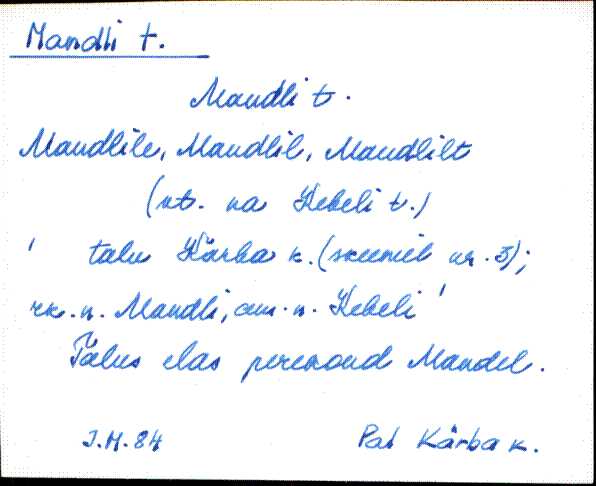 Mandli t.
Mandli t.
Mandlile, Mandlil, Mandlilt
(vt. ka Kebeli t.)
' talu Kärba k. (skeemil nr. 3);
rk. n. Mandli, am. n. Kebeli '
Talus elas perekond Mandel.
J.M. 84 Pal Kärba k.